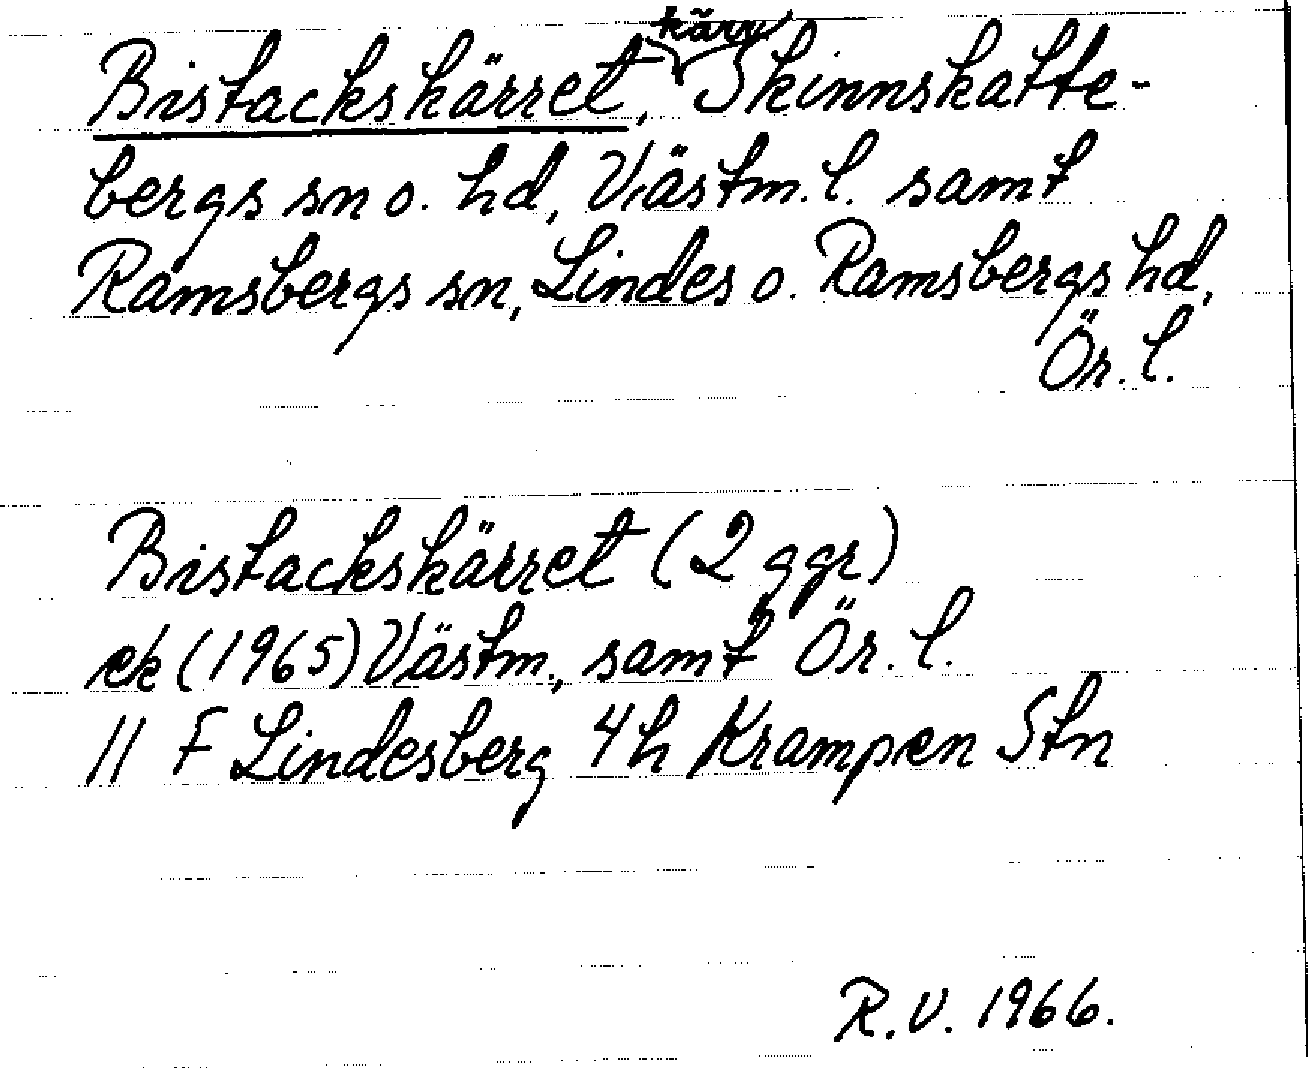 kärr
Bistackskärret, Skinnskatte-
bergs sn o. hd, Västm. l. samt
Ramsbergs sn, Lindes o. Ramsbergs hd,
Ör. l.
Bistackskärret (2 ggr)
ek (1965) Västm., samt Ör. l.
11 F Lindesberg 4h Krampen Stn
R.V. 1966.